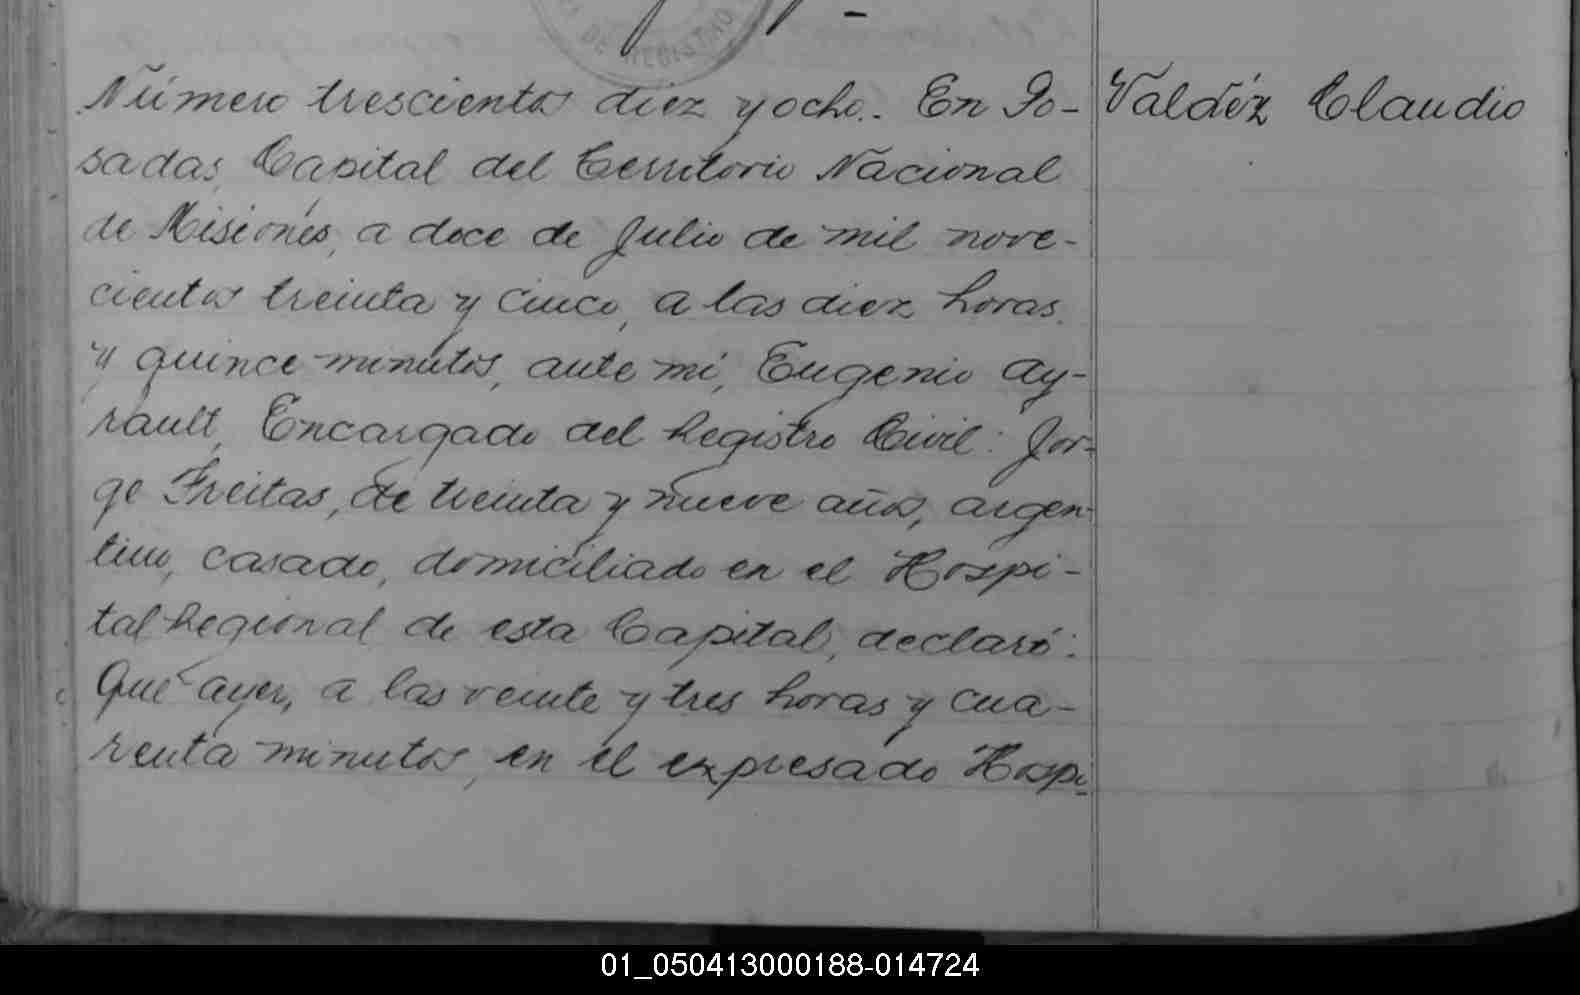 DE REGISTRO
Número trescientos diez y ocho.. En Po-
sadas, Capital del Territorio Nacional
de Misiones, a doce de Julio de mil nove-
cientos treinta y cinco, a las diez horas
y quince minutos, ante mí, Eugenio Ay-
rault, Encargado del Registro Civil: Jor-
ge Freitas, de treinta y nueve años, argen-
tino, casado, domiciliado en el Hospi-
tal Regional de esta Capital, declaró:
Que ayer, a las veinte y tres horas y cua-
renta minutos, en el expresado Hospi-
Valdéz Claudio
01_050413000188-014724